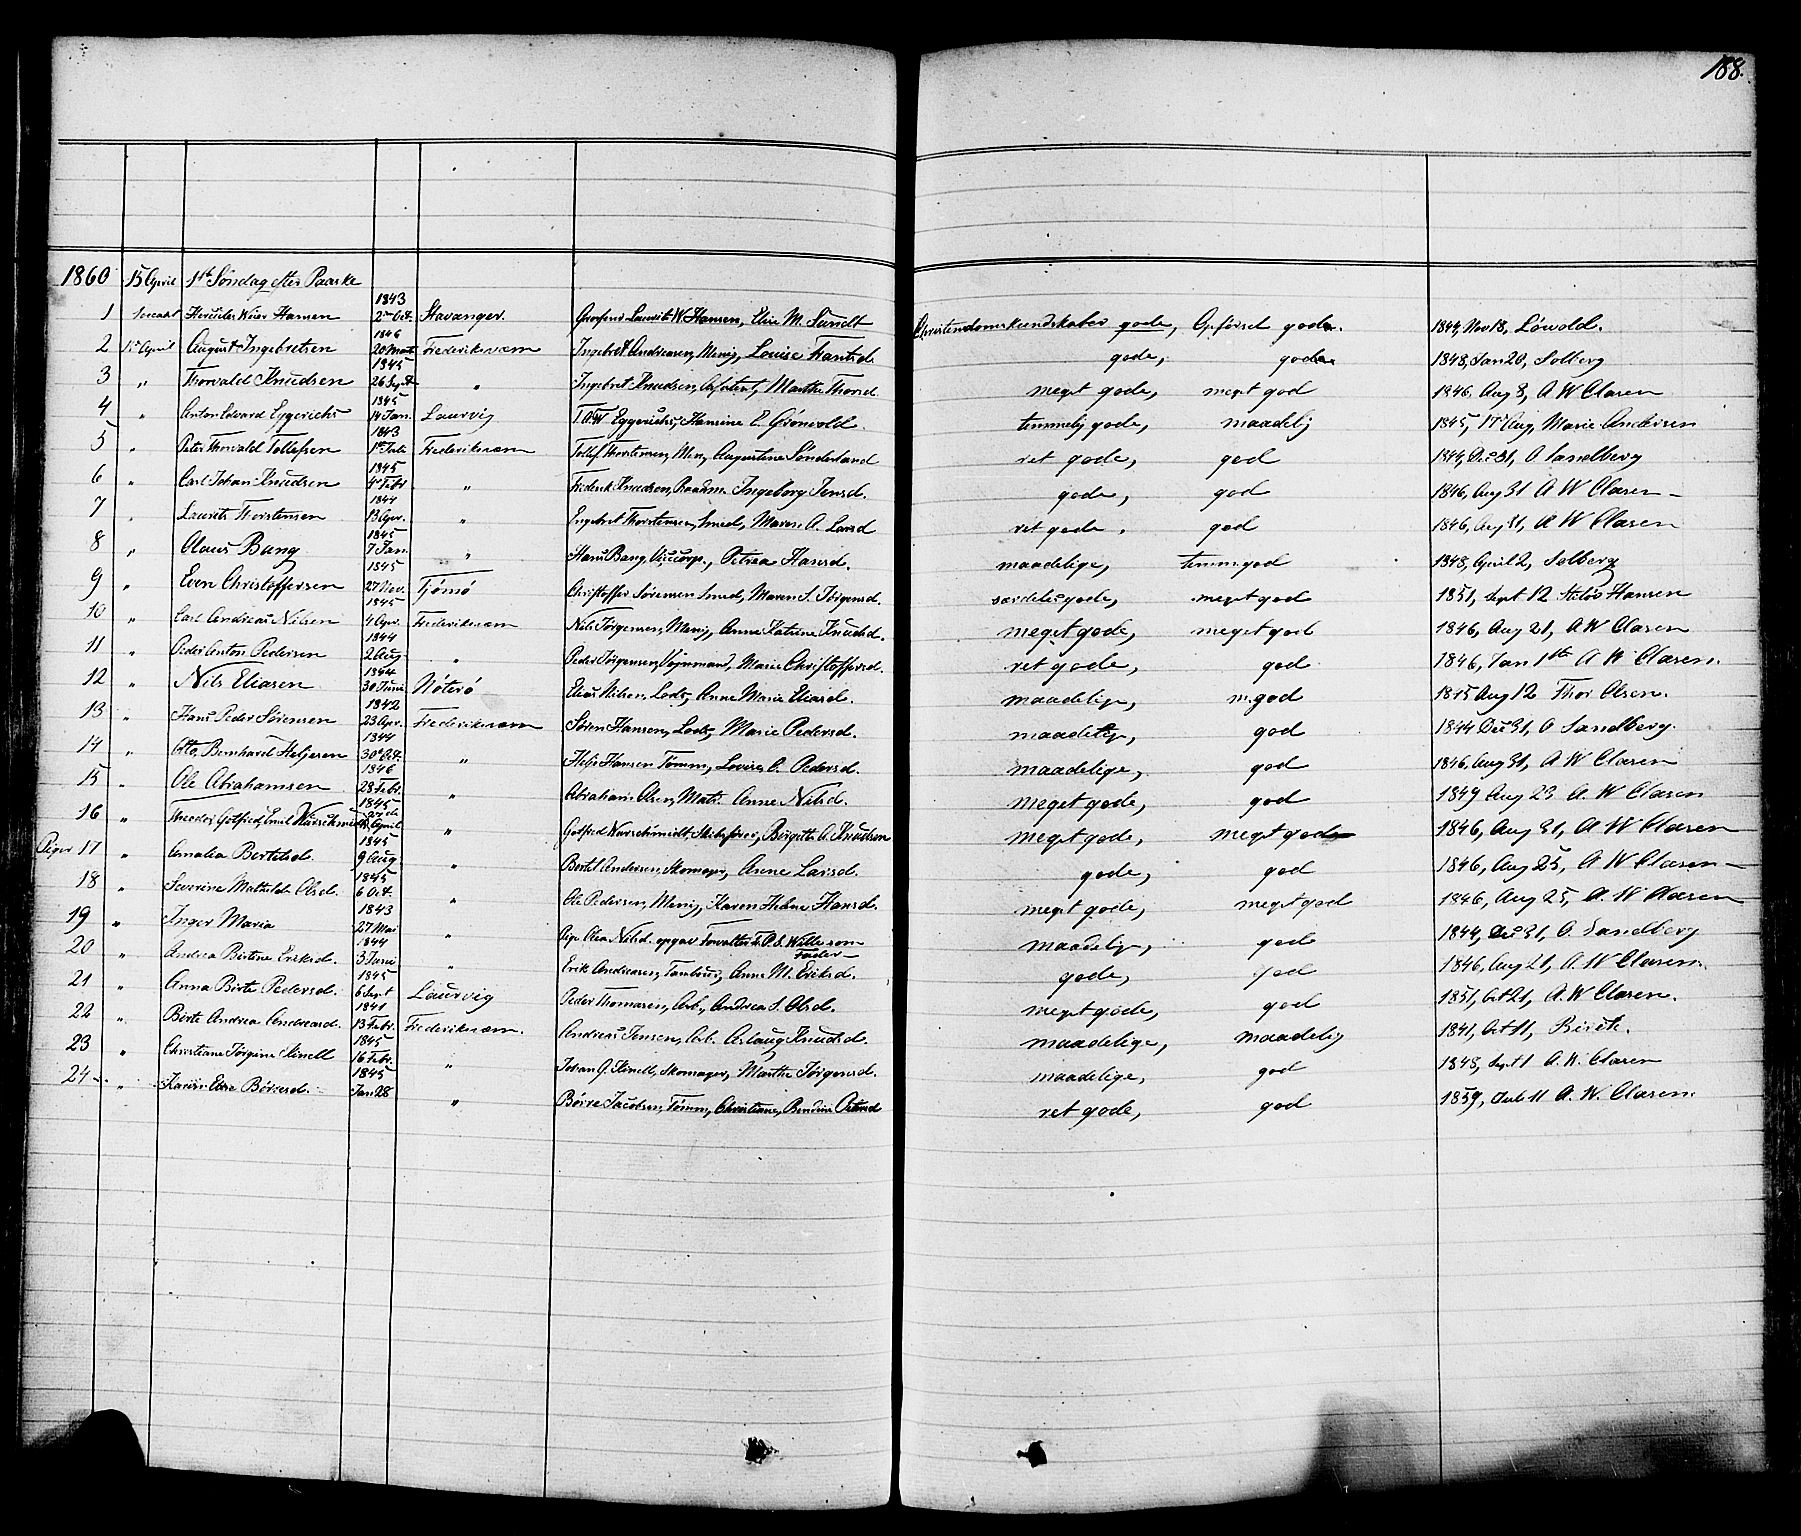 188.
1860 15 April 1ste Søndag efter Paaske
1 Hansen 1843 2 Oct. Stavanger. Lauritz W Hansen, Elise M. Sundt Christendomskundskaber gode, Opførsel god. 1844, Nov 18, Löwold.
2 15 April August Ingebretsen 1846 20 Mart. Fredriksværn Ingebret Andreasen, Menig, Louise Frantsd. gode, god 1848, Jan 20, Solberg
3 " Thorvald Knudsen 1845 26 Sept " Ingebret Knudsen, Marthe Thorsd meget gode, meget god 1846, Aug 8, A W Clasen
4 " Anton Edvard Eggerichs 1845 14 Jan. Laurvig T. O. W Eggerichs, Hansine C. Grønvold. temmelig gode, maadelig 1845, 17 Aug, Marie Andersen
5 " Peter Thorvald Tollefsen 1843 1 Juli Frederiksværn Tollef Thorstensen, Men, Augustine Sønderland ret gode, god 1844, Dec 31, O Sandberg
6 " Carl Johan Knudsen 1845 4 Febr " Frederik Knudsen, Ingeborg Jensd. gode, god 1846, Aug 31 A W Clasen
7 " Laurits Thorstensen 1844 13 Apr. " Engebret Thorstensen, Smed, Maren A. Larsd ret gode, god 1846, Aug 31, A W Clasen
8 " Claus Bang 1845 7 Jan. " Hans Bang, Petrea Hansd. maadelige, temm. god 1848, April 2, Solberg
9 " Even Christoffersen 1845 27 Nov. Tjømø Christoffer Sørensen Smed, Maren S. Jørgensd. særdeles gode, meget god 1851, Sept 12 Hansen
10 " Carl Andreas Nilsen 1845 4 Apr. Frederiksværn Nils Jørgensen, Menig, Anne Katrine Knudsd. meget gode, meget god 1846, Aug 21, A W Clasen
11 " Peder Anton Pedersen 1844 2 Aug " Peder Jørgensen, Vognmand, Marie Christoffersd. ret gode, god 1846, Jan 1ste A W Clasen.
12 " Nils Eliasen 1844 30 Juni Nøterø Elias Nilsen, Lods, Anne Marie Eliasd. maadelige, m. god 1845 Aug 12 Thor Olsen.
13 " Hans Peder Sørensen 1842 23 Apr. Frederiksværn Søren Hansen, Lods, Marie Pedersd. maadelige, god 1844 Dec 31, O Sandberg.
14 " Otto Bernhard Heljesen 1844 30 Oct. " Helje Hansen Tømm, Lovise C. Pedersd. maadelige, god 1846, Aug 31, A W Clasen
15 " Ole Abrahamsen 1846 28 Febr. " Abraham Olsen, Mat. Anne Nilsd. meget gode, god 1849 Aug 23 A. W Clasen
16 " Theodor Gotfred Emil 1845 April " Gotfred Birgithe C. Knudsen meget gode, meget god 1846, Aug 31, A W Clasen
Piger 17 " Amalia Bertelsd. 1845 9 Aug. " Bertel Andersen, Skomager, Anne Larsd. gode, god 1846, Aug 25, A W Clasen
18 " Severine Mathilde Olsd. 1845 6 Oct. " Ole Pedersen, Menig, Karen Helene Hansd. meget gode, meget god 1846, Aug 25, A. W Clasen
19 " Inger Maria 1843 27 Mai " Pige Olea Nilsd. opgav Forvalter Wille som Fader maadelige, god 1844, Dec 31, O. Sandberg
20 " Andrea Birtine Eriksd. 1844 3 Juni " Erik Andreasen, Tambour, Anne M. Eriksd. gode, god 1846, Aug 21, A. W Clasen.
21 " Anna Birte Pedersd. 1845 6 Sept Laurvig Peder Thomasen, Arb., Andrea S. Olsd. meget gode, god 1851, Oct 21, A. W Clasen.
22 " Birte Andrea Andreasd. 1841 13 Febr. Frederiksværn. Andreas Jensen, Arb. Aslaug Knudsd. maadelige, maadelig 1841, Oct 11,
23 " Christiane Jørgine 1845 16 Febr. " Johan G. Skomager, Marthe Jørgensd. maadelige, god 1848, Sept 1 A. W. Clasen
24 " Karen Elise Børresd. 1845 Jan 28 " Børre Jacobsen, Tømm, Christiane Bendine ret gode, god 1859, Juli 11 A. W. Clasen.